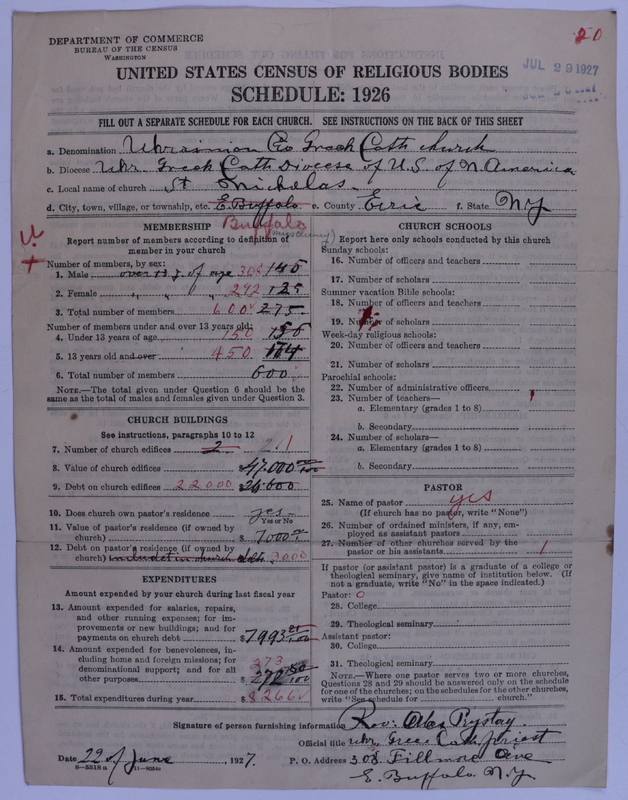 20
DEPARTMENT OF COMMERCE
BUREAU OF THE CENSUS
WASHINGTON
JUL 29 1927
UNITED STATES CENSUS OF RELIGIOUS BODIES
SCHEDULE: 1926
FILL OUT A SEPARATE SCHEDULE FOR EACH CHURCH. SEE INSTRUCTIONS ON THE BACK OF THIS SHEET
a. Denomination Ukrainian Greek Cath church
b. Diocese Ukr. Greek Cath Diocese of U.S. of N America
c. Local name of church St Nicholas
d. City, town, village, or township, etc. E. Buffalo e. County Erie f. State NY
Buffalo
MEMBERSHIP
Report number of members according to definition of
member in your church
Number of members, by sex:
1. Male over 13 y. of age 308 146
2. Female " " " 292 125
3. Total number of members 600 275
Number of members under and over 13 years old:
4. Under 13 years of age 150 156
5. 13 years old and over 450 164
6. Total number of members 600
NOTE.—The total given under Question 6 should be the
same as the total of males and females given under Question 3.
CHURCH BUILDINGS
See instructions, paragraphs 10 to 12
7. Number of church edifices 2 1
8. Value of church edifices $47.000 00/100
9. Debt on church edifices 22000 $
10. Does church own pastor's residence yes
Yes or No
11. Value of pastor's residence (if owned by
church) $ 7000
12. Debt on pastor's residence (if owned by
church) included in church debt 3000
EXPENDITURES
Amount expended by your church during last fiscal year
13. Amount expended for salaries, repairs,
and other running expenses; for im-
provements or new buildings; and for
payments on church debt $7993
14. Amount expended for benevolences, in-
cluding home and foreign missions; for
denominational support; and for all
other purposes 273 $ 272 50/100
15. Total expenditures during year $ 8266
CHURCH SCHOOLS
Report here only schools conducted by this church
Sunday schools:
16. Number of officers and teachers
17. Number of scholars
Summer vacation Bible schools:
18. Number of officers and teachers
19. Number of scholars
Week-day religious schools:
20. Number of officers and teachers
21. Number of scholars
Parochial schools:
22. Number of administrative officers
23. Number of teachers—
a. Elementary (grades 1 to 8)
b. Secondary
24. Number of scholars—
a. Elementary (grades 1 to 8)
b. Secondary
PASTOR
25. Name of pastor yes
(If church has no pastor, write "None")
26. Number of ordained ministers, if any, em-
ployed as assistant pastors
27. Number of other churches served by the
pastor or his assistants 1
If pastor (or assistant pastor) is a graduate of a college or
theological seminary, give name of institution below. (If
not a graduate, write "No" in the space indicated.)
Pastor: 0
28. College
29. Theological seminary
Assistant pastor:
30. College
31. Theological seminary
NOTE.—Where one pastor serves two or more churches,
Questions 28 and 29 should be answered only on the schedule
for one of the churches; on the schedules for the other churches,
write "See schedule for church.
Signature of person furnishing information Rev: Alex Prystay
Official title Ukr. Greec Cath priest
Date 22 of June, 1927. P. O. Address 308 Fillmore Ave
8—5518 a E. Buffalo N.Y.